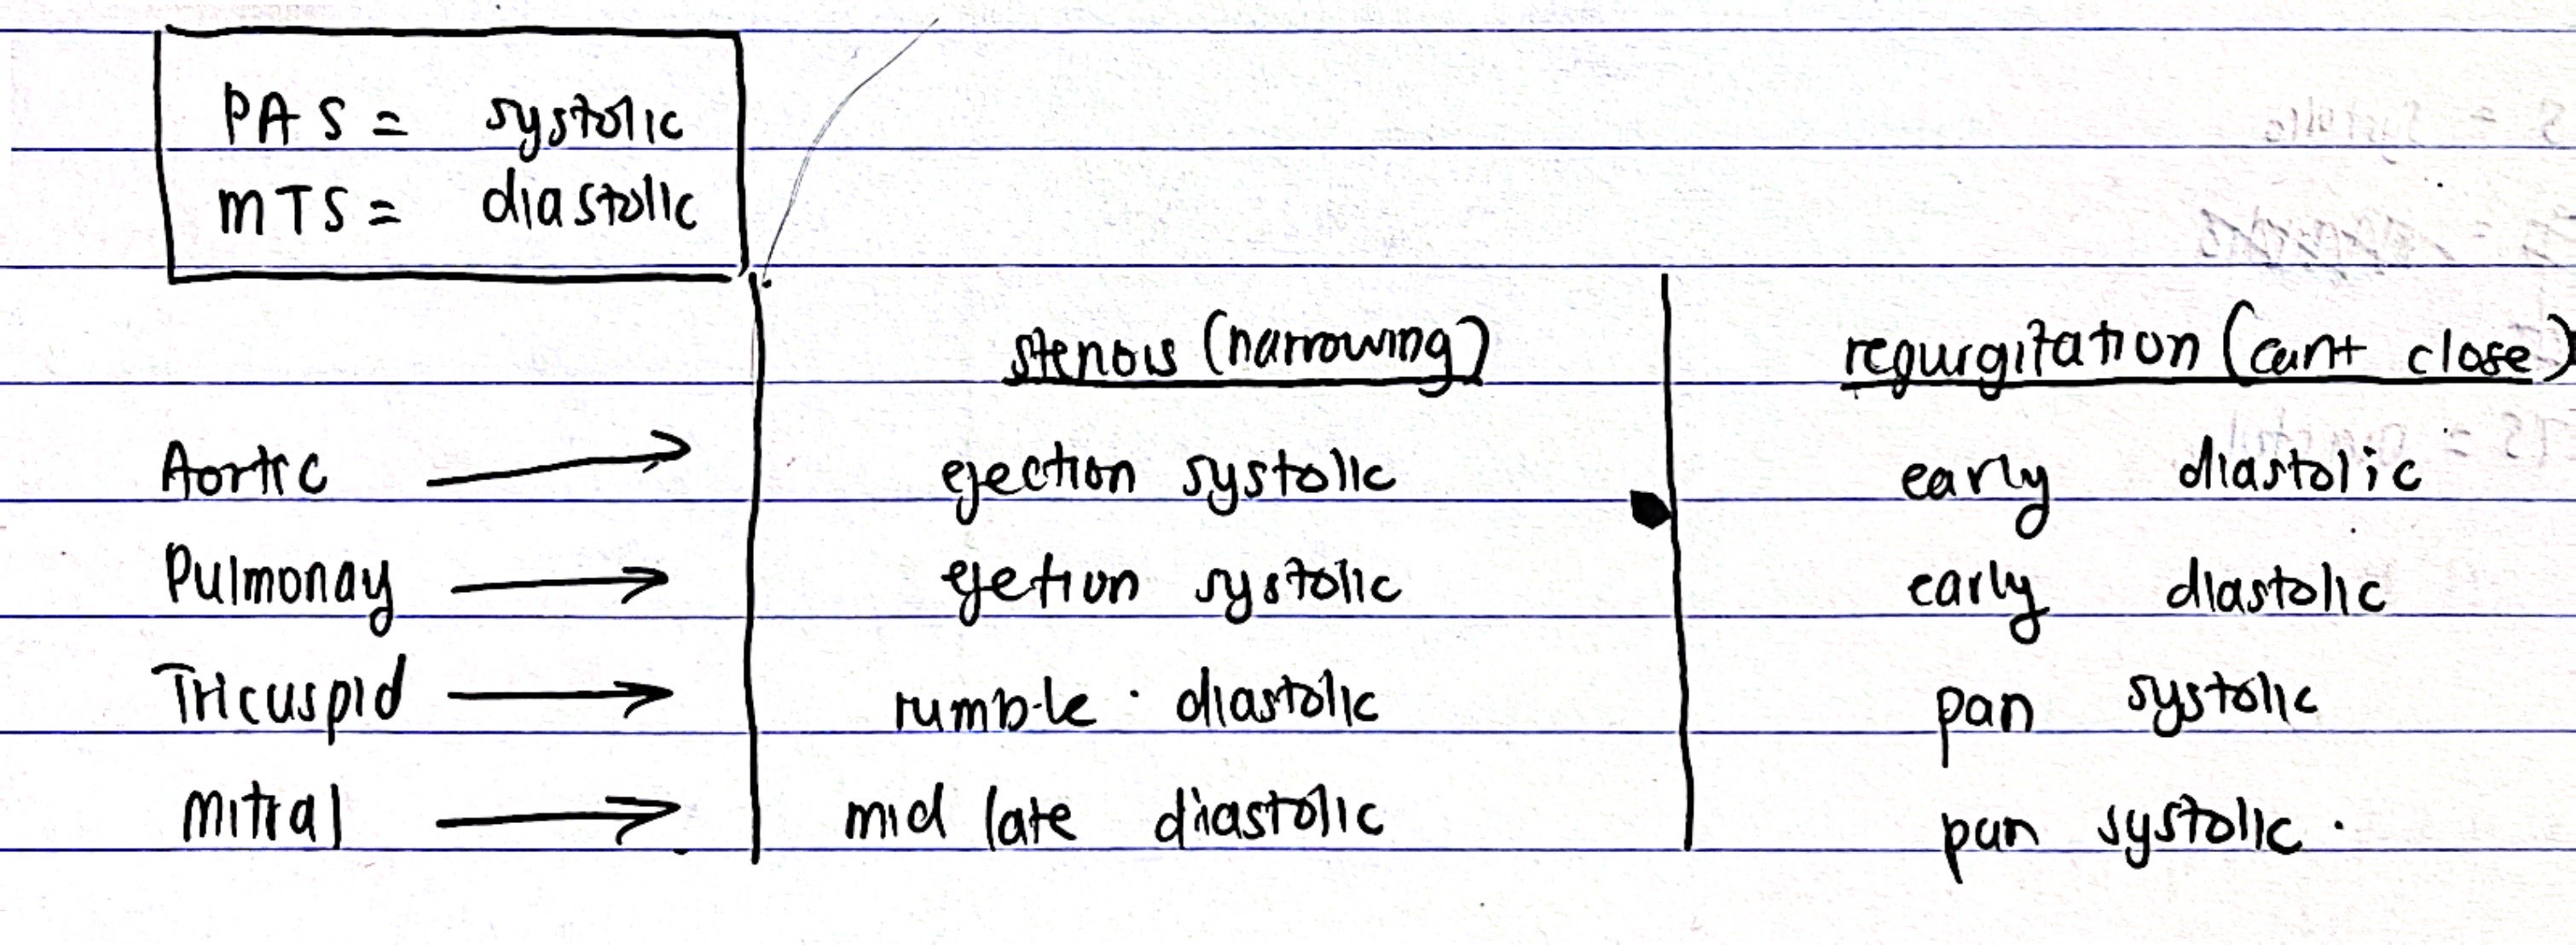 PAS = systolic
MTS = diastolic
stenois (narrowing) regurgitation (cant close)
Aortic → ejection systolic early diastolic
Pulmonay → ejetion systolic early diastolic
Tricuspid → rumble · diastolic pan systolic
Mitral → mid late diastolic pan systolic ·